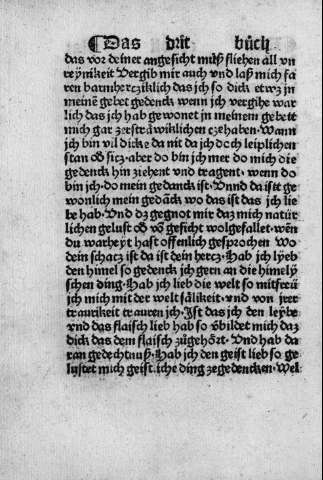 ¶Das drit bůch
das vor deiner angesicht můſſ fliehen all vn
reynikeit Vergib mir auch vnd laſſ mich fa
ren barmhercziklich das jch so dick etwz in
meinē gebet gedenck wenn jch vergihe war
lich das jch hab gewonet in meinem gebeit
mich gar zerstråwiklichen czehaben. Wann
jch bin vil dicke da nit da jch doch leiplichen
stan od sicz. aber do bin jch mer do mich die
gedenck hin ziehent vnd tragent. wenn do
bin jch. do mein gedanck ist. Vnnd da istt ge
wonlich mein gedāck wo das ist das jch lie
be hab. Vnd dz gegnot mir daz mich natúr
lichen gelust od vō gesicht wolgefallet. wēn
du warheyt hast offenlich gesprochen Wo
dein schacz ist da ist dein hercz. Hab jch lyeb
den himel so gedenck jch gern an die himely
schen ding. Hab jch lieb die welt so mitfreú
jch mich mit der welt sålikeit. vnd von jrer
traurikeit trauren jch. Ist das jch den leybe
vnd das flaisch lieb hab so v̄bildet mich daz
dick das dem flaisch zůgehört. Vnd hab da
ran gedechtnuſſ. Hab jch den geist lieb so ge
lystet mich geistliche ding zegedencken. Wel